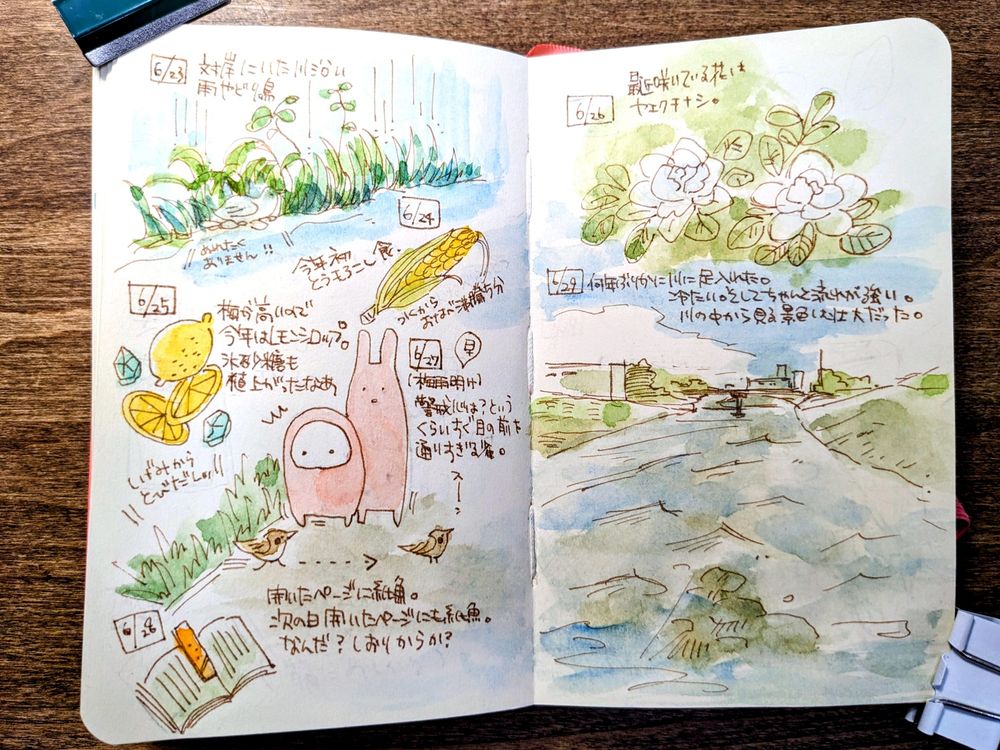 6/23
対岸にいた川沿い
雨やどり鳥
ぬれたく
ありません!!
6/24
今年初
とうもろこし食.
6/25
梅が高いので
今年はレモンシロップ。
氷砂糖も
値上がったなあ
6/27
早
(梅雨明け)
警戒心は?という
くらいすぐ目の前を
通りすぎる雀。
スーーン
しげみから
とびだし
6/28
開いたページに紙魚。
次の日開いたページにも紙魚。
なんだ?しおりからか?
6/26
最近咲いている花は
ヤエクチナシ。
6/29
何年ぶりかに川に足入れた。
冷たい。そしてちゃんと流れが強い。
川の中から見る景色は壮大だった。